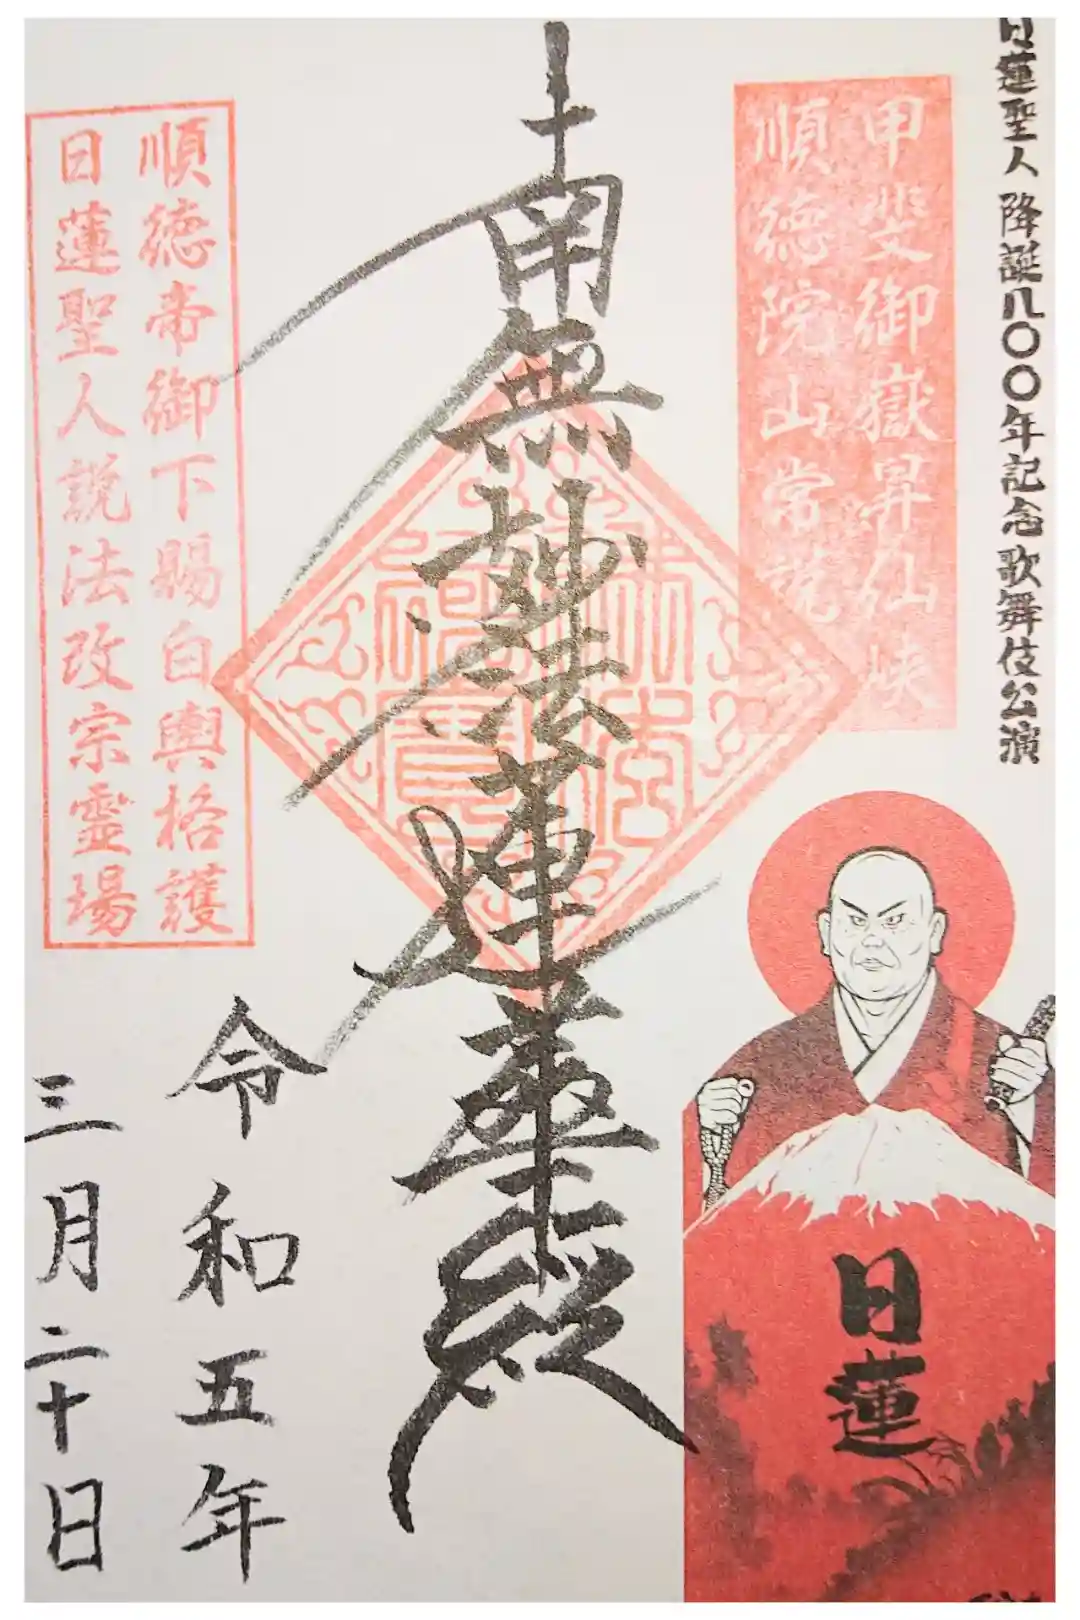 日蓮聖人降誕八〇〇年記念歌舞伎公演
甲斐御嶽昇仙峡
順徳院山常説寺
南無妙法蓮華経
順徳帝御下賜白輿格護
日蓮聖人説法改宗霊場
令和五年
三月二十日
日蓮